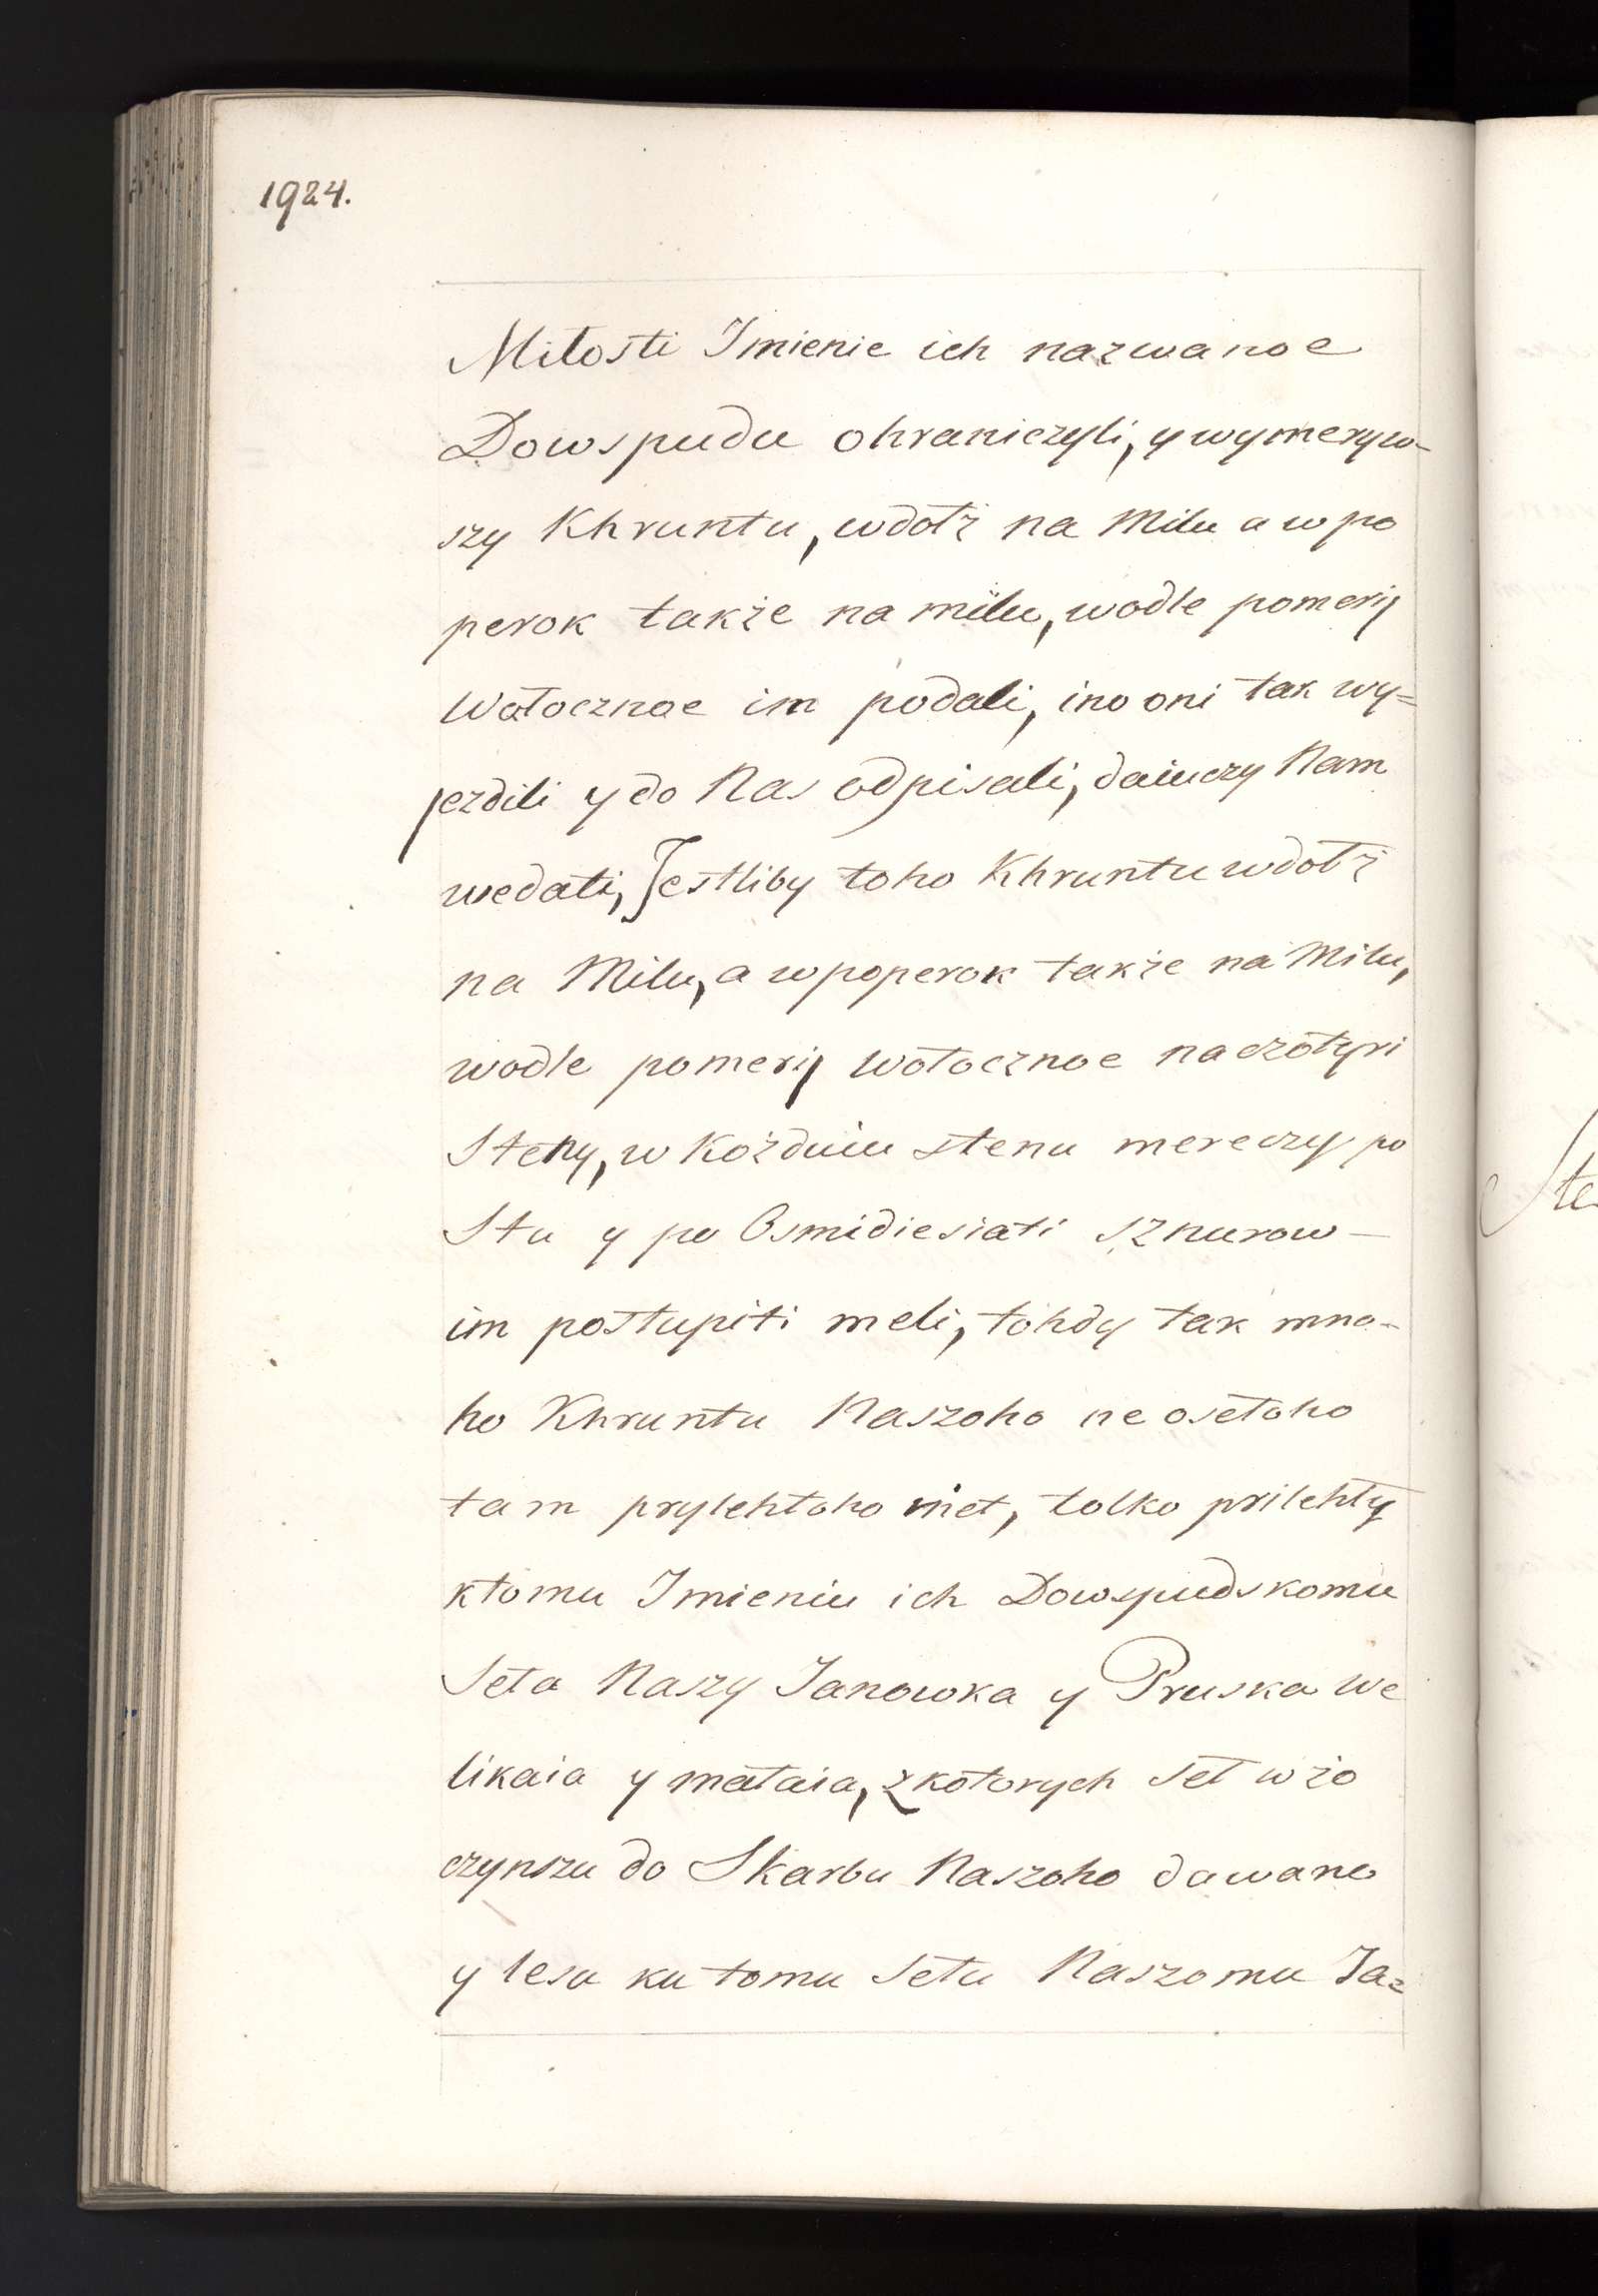 1924.
Miłosti Imienie ich nazwanoe
Dowspudu ohraniczyli, y wymeryw-
szy Khruntu, wdołż na Milu a w po
perok także na milu, wodle pomerij
Wołocznoe im podali, ino oni tak wy=
jezdili y do Nas odpisali, daiuczy Nam
wedati, Jestliby toho Khruntu wdołż
na Milu, a wpoperok także na Milu,
wodle pomerij wołocznoe na czotyri
Steny, w Kożduiu stenu mereczy po
Stu y po Osmidiesiati sznurow —
im postupiti meli, tohdy tak mno-
ho Khruntu Naszoho ne osełoho
tam prylehłoho niet, tolko prilehły
ktomu Imieniu ich Dowspudskomu
Seła Naszy Janowka y Pruska We
likaia y małaia, z kotorych Seł wżo
czynszu do Skarbu Naszoho dawano
y lesu ku tomu Sełu Naszomu Ja=
Ste